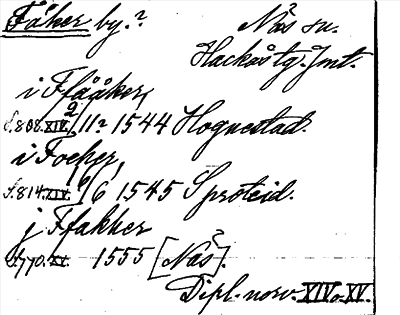 Fåker by.?
Näs sn.
Hackås tg. Jmt.
i Ffååker,
s. 808. XIV. 2/11? 1544 Hognestad.
i Focher,
s. 814. XIV. 6/6 1545 Sproteid.
j Ffakker
s. 770. XV. 1555 [Näs].
Dipl. norv. XIV o. XV.